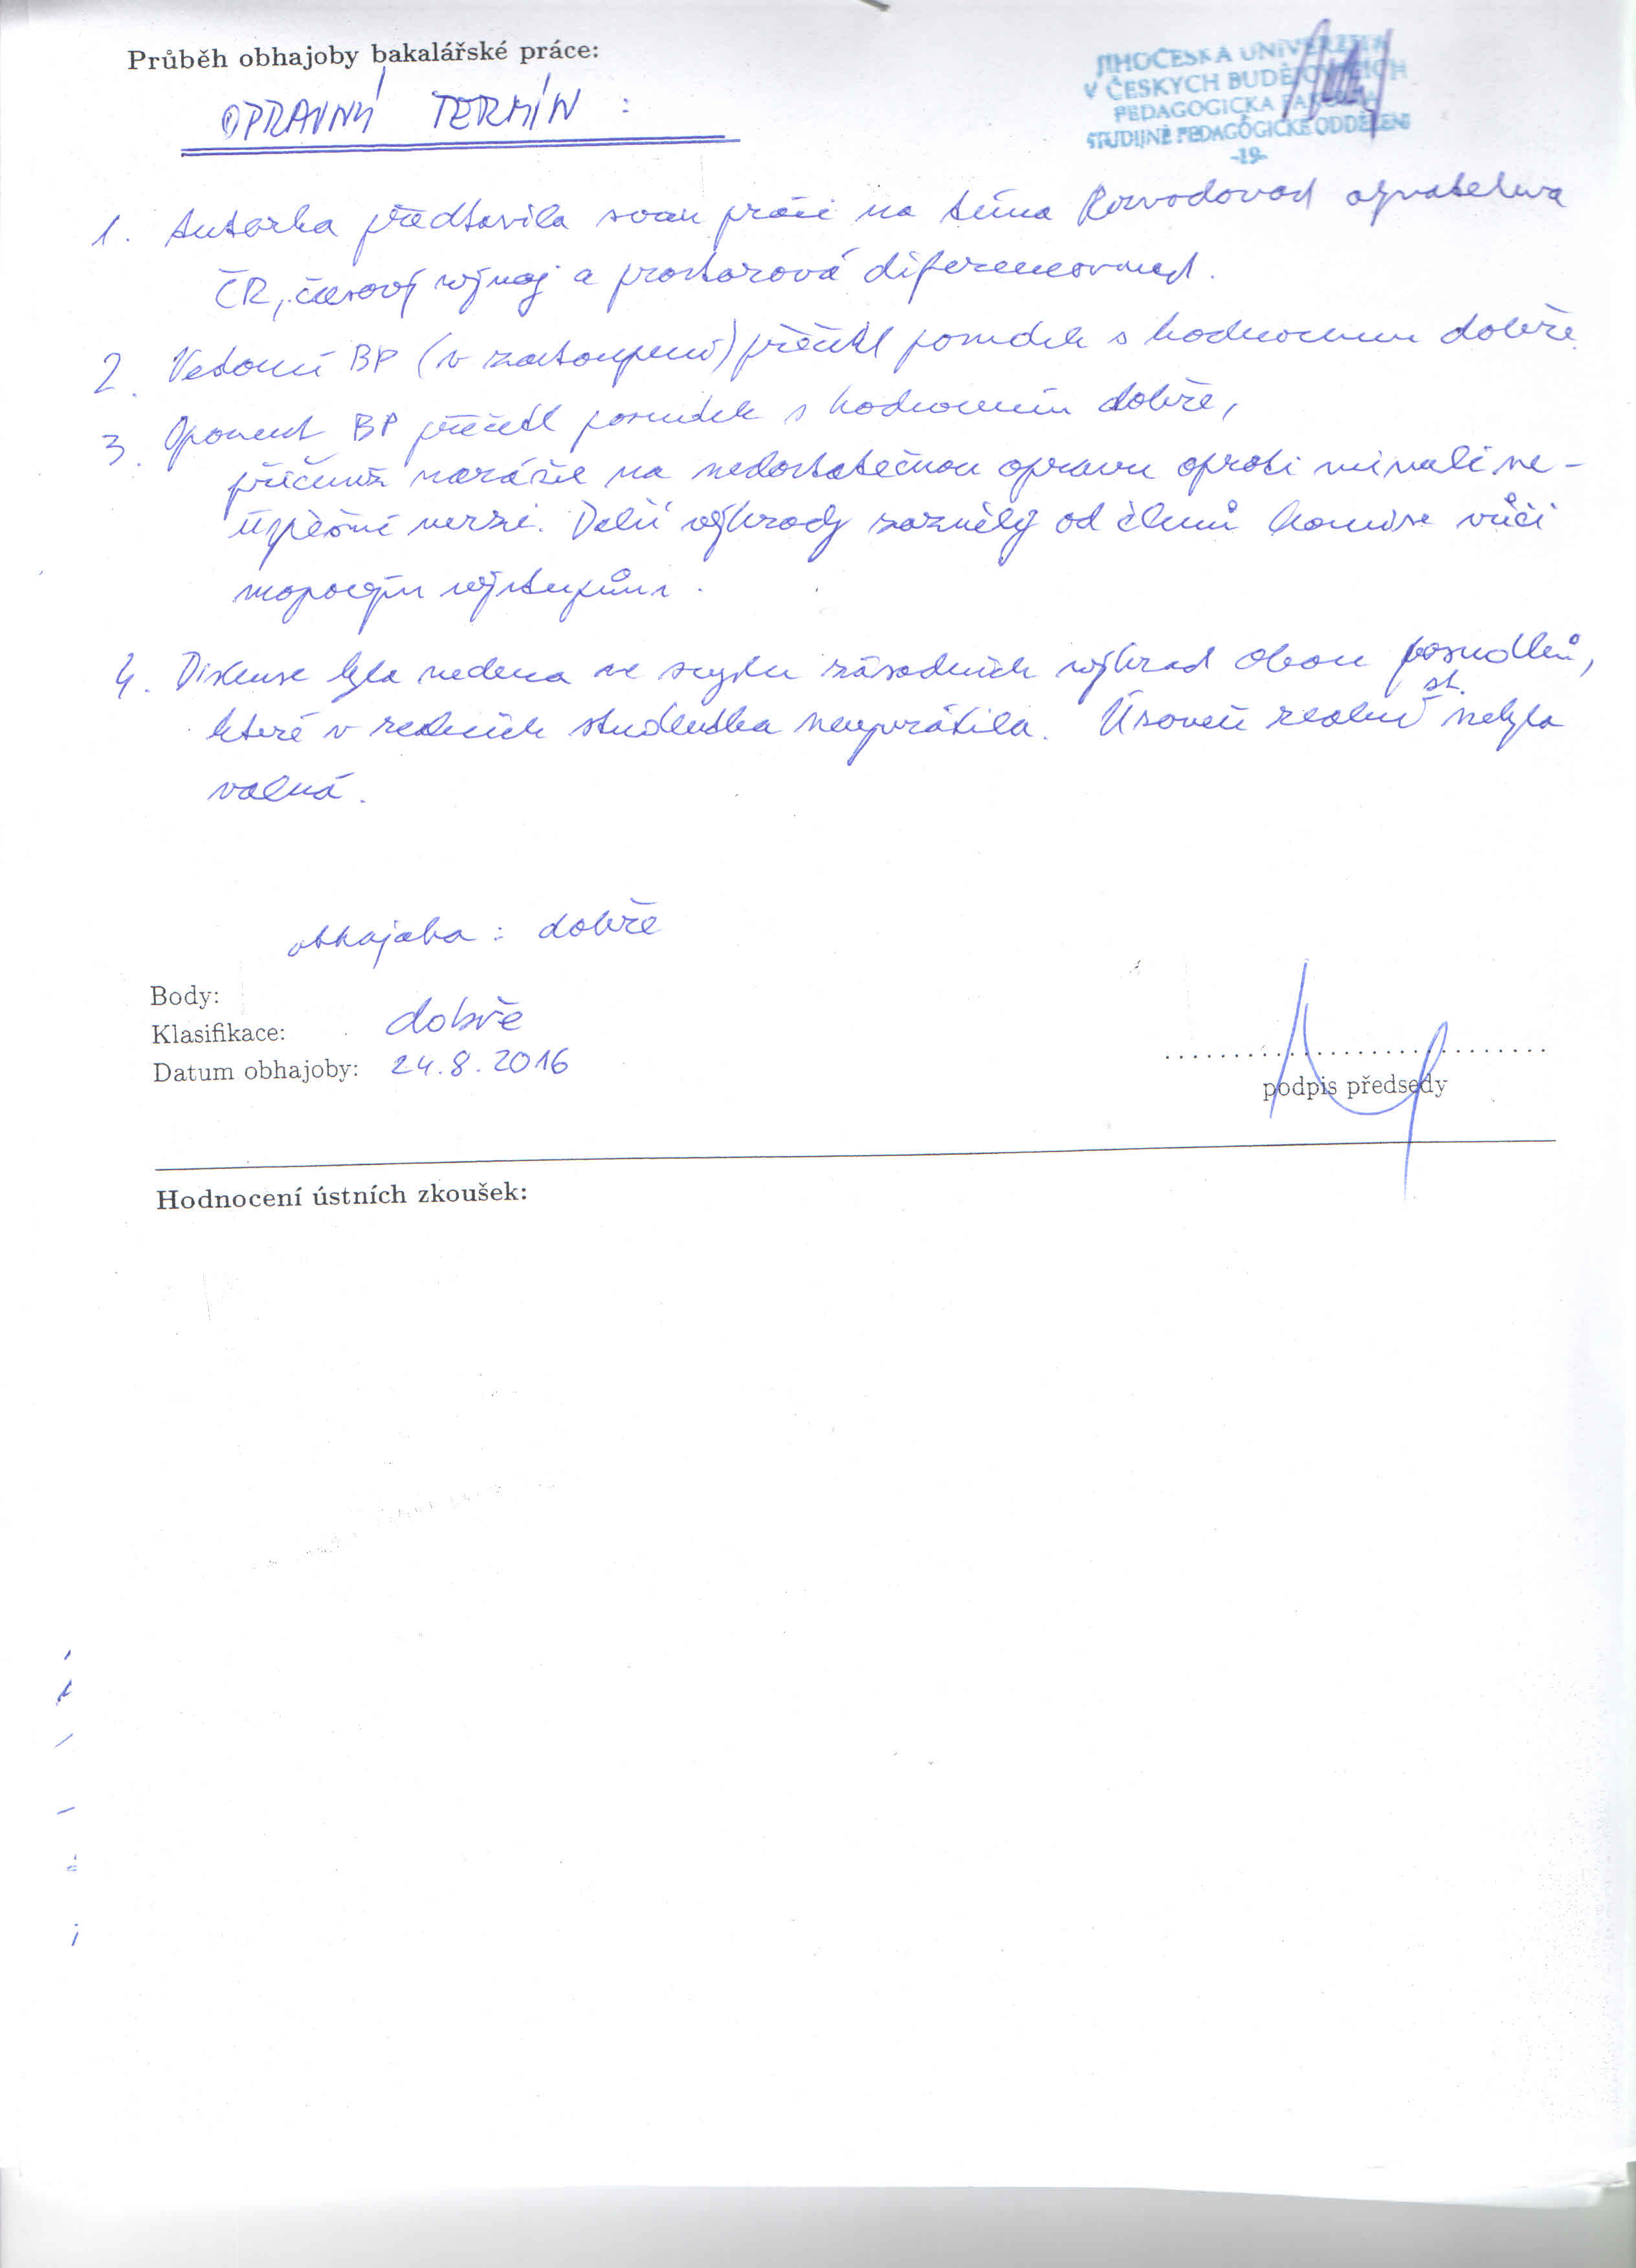 Průběh obhajoby bakalářské práce:
OPRAVNÝ TERMÍN :
JIHOČESKÁ UNIVERZITA
V ČESKÝCH BUDĚJOVICÍCH
PEDAGOGICKÁ FAKULTA
STUDIJNĚ PEDAGOGICKÉ ODDĚLENÍ
-19-
1. Autorka představila svou práci na téma Rozvodovost obyvatelstva
ČR, časový vývoj a prostorová diferencovanost.
2. Vedoucí BP (v zastoupení) přečetl posudek s hodnocením dobře
3. Oponent BP přečetl posudek s hodnocením dobře,
přičemž narážel na nedostatečnou opravu oproti minulé ne-
úspěšné verzi. Další výhrady zazněly od členů komise vůči
mapovým výstupům.
4. Diskuse byla vedena ve smyslu zásadních výhrad obou posudků,
které v reakcích studentka nevyvrátila. Úroveň reakcí st. nebyla
valná.
obhajoba : dobře
Body:
Klasifikace: dobře
Datum obhajoby: 24.8.2016
podpis předsedy
Hodnocení ústních zkoušek: